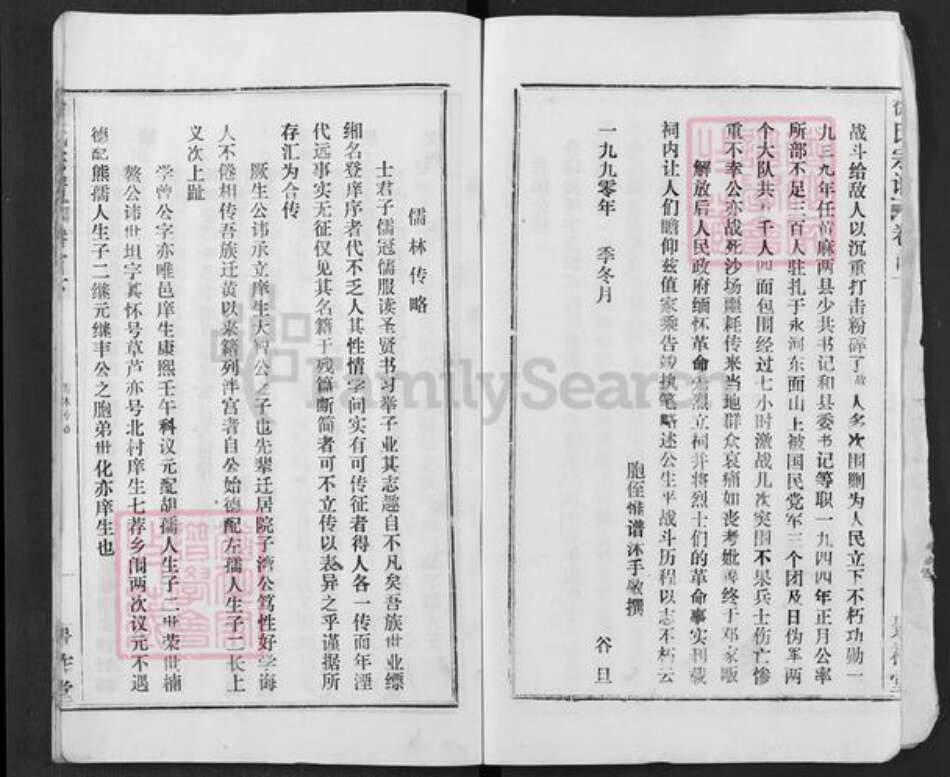 战斗给敌人以沉重打击粉碎了敌人多次围剿为人民立下不朽功勋一
九三九年任黄麻两县少共书记和县委书记等职一九四四年正月公率
所部不足三百人驻扎于永河东面山上被国民党军三个团及日伪军两
个大队共千人四面包围经过七小时激战几次突围不果兵士伤亡惨
重不幸公亦战死沙场噩耗传来当地群众哀痛如丧考妣葬终于邓家畈
解放后人民政府缅怀革命先烈立祠并将烈士们的革命事实刊载
祠内让人们瞻仰兹值家乘告竣执笔略述公生平战斗历程以志不朽云
胞侄惟谱沐手敬撰
一九九零年 季冬月 谷旦
儒林传略
士君子儒冠儒服读圣贤书习举子业其志趣自不凡矣吾族世业缥
缃名登庠序者代不乏人其性情学问实有可传征者得人各一传而年湮
代远事实无征仅见其名籍于残篇断简者可不立传以表异之乎谨据所
存汇为合传
厥生公讳承立庠生大智公之子也先辈迁居院子湾公笃性好学诲
人不倦相传吾族迁黄以来籍列泮宫者自公始德配左孺人生子二长上
义次上趾
学曾公字亦唯邑庠生康熙壬午科议元配胡孺人生子二世荣世楠
鳌公讳世坦字真怀号草芦亦号北村庠生七荐乡闱两次议元不遇
德配熊孺人生子二继元继丰公之胞弟世化亦庠生也
FamilySearch